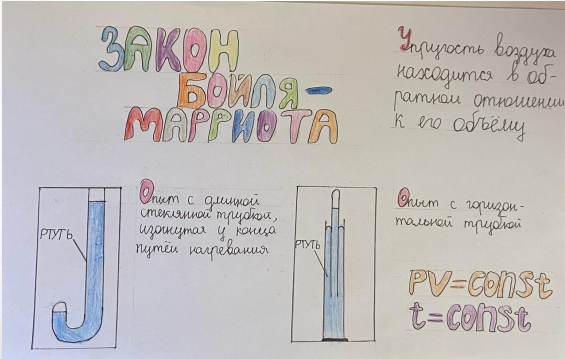 ЗАКОН
БОЙЛЯ-
МАРРИОТА
Упругость воздуха
находится в об-
ратном отношении
к его объёму
Опит с длинной
стеклянной трубкой,
изогнутая у конца
путём нагревания
РТУТЬ
Опыт с горизон-
тальной трубкой
РТУТЬ
PV=const
t=const